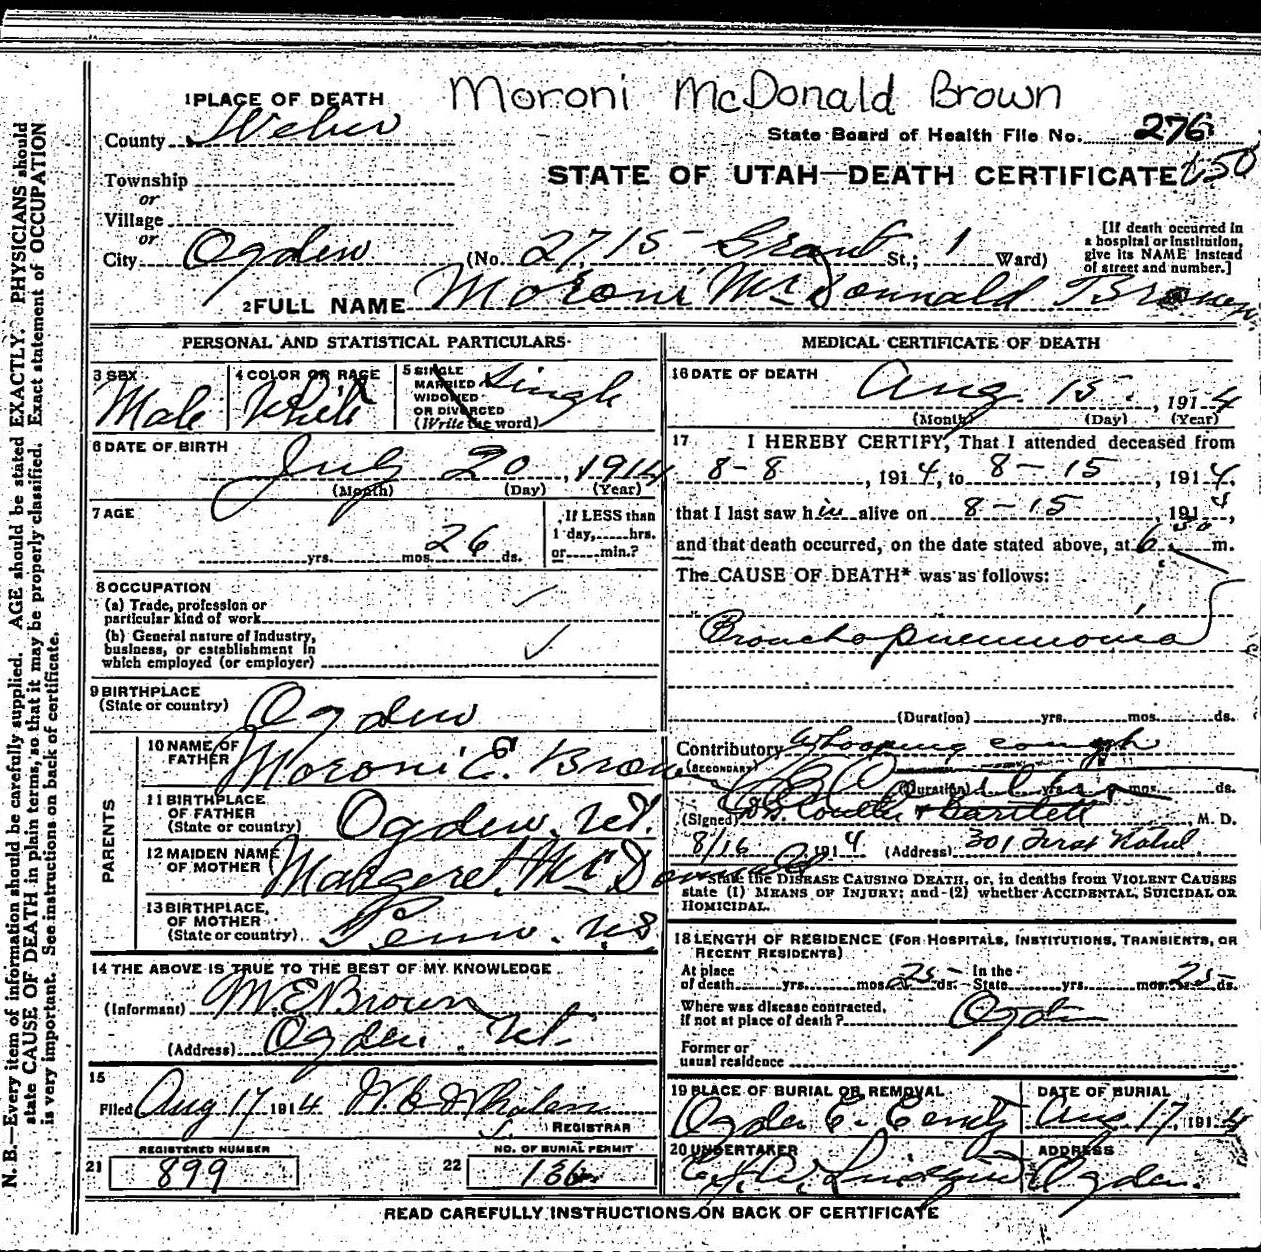 Moroni McDonald Brown
1 PLACE OF DEATH
County Weber
State Board of Health File No. 276
Township
or
STATE OF UTAH—DEATH CERTIFICATE 150
Village
or
City Ogden (No. 2715 Grant St.; 1 Ward)
[If death occurred in a hospital or institution, give its NAME instead of street and number.]
2 FULL NAME Moroni McDonnald Brown
PERSONAL AND STATISTICAL PARTICULARS
3 SEX Male
4 COLOR OR RACE White
5 SINGLE MARRIED WIDOWED OR DIVORCED (Write the word) Single
6 DATE OF BIRTH
July 20, 1914
(Month) (Day) (Year)
7 AGE
yrs. mos. 26 ds.
If LESS than 1 day, hrs. or min.?
8 OCCUPATION
(a) Trade, profession or particular kind of work
(b) General nature of industry, business, or establishment in which employed (or employer)
9 BIRTHPLACE
(State or country) Ogden
PARENTS
10 NAME OF FATHER Moroni E. Brown
11 BIRTHPLACE OF FATHER (State or country) Ogden, Ut.
12 MAIDEN NAME OF MOTHER Margeret McDonnald
13 BIRTHPLACE OF MOTHER (State or country) Penn. US
14 THE ABOVE IS TRUE TO THE BEST OF MY KNOWLEDGE
(Informant) M. E. Brown
(Address) Ogden Ut.
15
Filed Aug 17 1914
REGISTRAR
REGISTERED NUMBER
21 899
NO. OF BURIAL PERMIT
22 136
MEDICAL CERTIFICATE OF DEATH
16 DATE OF DEATH
Aug. 15, 1914
(Month) (Day) (Year)
17 I HEREBY CERTIFY, That I attended deceased from
8-8, 1914, to 8-15, 1914,
that I last saw him alive on 8-15, 1914,
and that death occurred, on the date stated above, at 6 30 m.
The CAUSE OF DEATH* was as follows:
Bronchopneumonia
(Duration) yrs. mos. ds.
Contributory Whooping cough
(SECONDARY)
(Duration) yrs. mos. ds.
(Signed) Coulter & Bartlett M. D.
8/16 1914 (Address) 301 First Natnl.
*State the DISEASE CAUSING DEATH, or, in deaths from VIOLENT CAUSES
state (1) MEANS OF INJURY; and (2) whether ACCIDENTAL, SUICIDAL OR
HOMICIDAL.
18 LENGTH OF RESIDENCE (FOR HOSPITALS, INSTITUTIONS, TRANSIENTS, OR
RECENT RESIDENTS)
At place of death yrs. mos. 25 ds. In the State yrs. mos. 25 ds.
Where was disease contracted, if not at place of death? Ogden
Former or usual residence
19 PLACE OF BURIAL OR REMOVAL Ogden C. Cemty
DATE OF BURIAL Aug. 17, 1914
20 UNDERTAKER
ADDRESS Ogden.
READ CAREFULLY INSTRUCTIONS ON BACK OF CERTIFICATE
N. B.—Every item of information should be carefully supplied. AGE should be stated EXACTLY. PHYSICIANS should
state CAUSE OF DEATH in plain terms, so that it may be properly classified. Exact statement of OCCUPATION
is very important. See instructions on back of certificate.